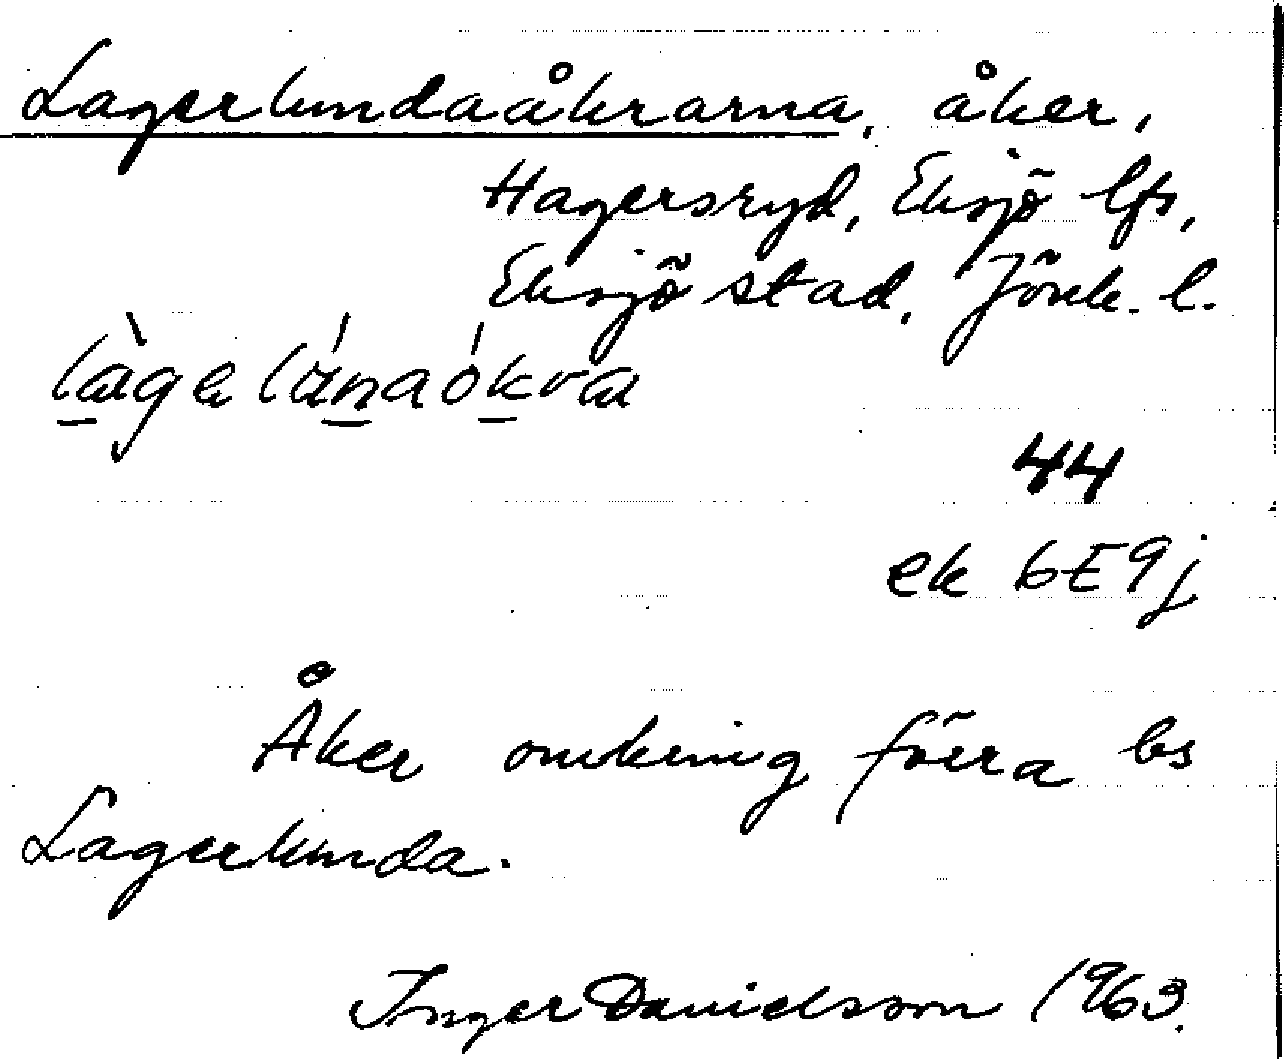 Lagerlundaåkrarna, åker,
Hagersryd, Eksjö lfs,
Eksjö stad, Jönk. l.
44
ek 6E9j
Åker omkring förra bs
Lagerlunda.
Inger Danielsson 1963.